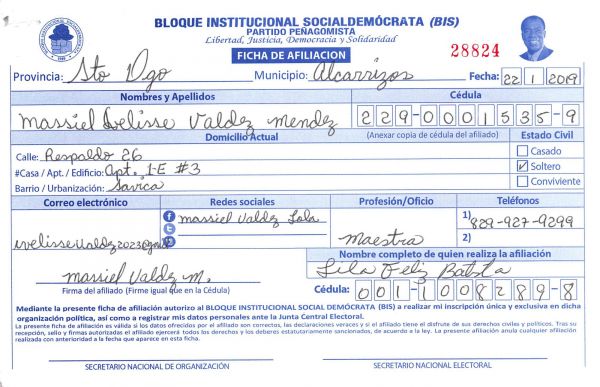 BLOQUE INSTITUCIONAL SOCIALDEMÓCRATA (BIS)
PARTIDO PEÑAGOMISTA
Libertad, Justicia, Democracia y Solidaridad
FICHA DE AFILIACION
28824
Provincia: Sto Dgo Municipio: Alcarrizos Fecha: 22 1 2019
Nombres y Apellidos Cédula
Massiel Evelisse Valdez Mendez 229-0001535-9
Domicilio Actual (Anexar copia de cédula del afiliado) Estado Civil
Calle: Respaldo 26 Casado
#Casa / Apt. / Edificio: Apt. 1-E #3 Soltero
Barrio / Urbanización: Savica Conviviente
Correo electrónico Redes sociales Profesión/Oficio Teléfonos
massiel Valdez Lola 1) 829-927-9299
evelisseValdez2023@gmail Maestra 2)
Nombre completo de quien realiza la afiliación
Massiel Valdez M. Lila Feliz Batista
Firma del afiliado (Firme igual que en la Cédula) Cédula: 001-1008289-8
Mediante la presente ficha de afiliación autorizo al BLOQUE INSTITUCIONAL SOCIAL DEMÓCRATA (BIS) a realizar mi inscripción única y exclusiva en dicha
organización política, así como a registrar mis datos personales ante la Junta Central Electoral.
La presente ficha de afiliación es válida si los datos ofrecidos por el afiliado son correctos, las declaraciones veraces y si el afiliado tiene el disfrute de sus derechos civiles y políticos. Tras su
recepción, sello y firmas autorizadas el afiliado ejercerá todos los derechos y los deberes estatutariamente sancionados, de acuerdo a la ley. La presente afiliación anula cualquier afiliación
realizada con anterioridad a la fecha que aparece en esta ficha.
SECRETARIO NACIONAL DE ORGANIZACIÓN SECRETARIO NACIONAL ELECTORAL